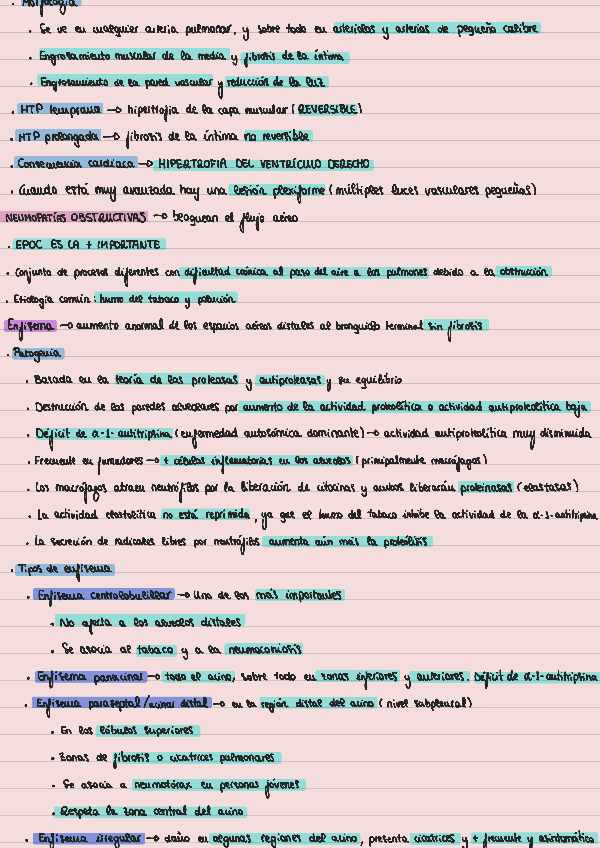 · Morfología
· Se ve en cualquier arteria pulmonar, y sobre todo en arteriolas y arterias de pequeño calibre
· Engrosamiento muscular de la media y fibrosis de la íntima
· Engrosamiento de la pared vascular y reducción de la luz
· HTP temprana → hipertrofia de la capa muscular (REVERSIBLE)
· HTP prolongada → fibrosis de la íntima no reversible
· Consecuencia cardíaca → HIPERTROFIA DEL VENTRÍCULO DERECHO
· Cuando está muy avanzada hay una lesión plexiforme (múltiples luces vasculares pequeñas)
NEUMOPATÍAS OBSTRUCTIVAS → bloquean el flujo aéreo
· EPOC ES LA + IMPORTANTE
· Conjunto de procesos diferentes con dificultad crónica al paso del aire a los pulmones debido a la obstrucción
· Etiología común: humo del tabaco y polución
Enfisema → aumento anormal de los espacios aéreos distales al bronquiolo terminal sin fibrosis
· Patogenia
· Basada en la teoría de las proteasas y antiproteasas y su equilibrio
· Destrucción de las paredes alveolares por aumento de la actividad proteolítica o actividad antiproteolítica baja
· Déficit de α-1-antitriptina (enfermedad autosómica dominante) → actividad antiproteolítica muy disminuida
· Frecuente en fumadores → + células inflamatorias en los alveolos (principalmente macrófagos)
· Los macrófagos atraen neutrófilos por la liberación de citocinas y ambos liberarán proteinasas (elastasas)
· La actividad elastolítica no está reprimida, ya que el humo del tabaco inhibe la actividad de la α-1-antitriptina
· La secreción de radicales libres por neutrófilos aumenta aún más la proteólisis
· Tipos de enfisema
· Enfisema centrolobulillar → Uno de los más importantes
· No afecta a los alveolos distales
· Se asocia al tabaco y a la neumoconiosis
· Enfisema panacinar → todo el acino, sobre todo en zonas inferiores y anteriores. Déficit de α-1-antitriptina
· Enfisema paraseptal/acinar distal → en la región distal del acino (nivel subpleural)
· En los lóbulos superiores
· Zonas de fibrosis o cicatrices pulmonares
· Se asocia a neumotórax en personas jóvenes
· Respeta la zona central del acino
· Enfisema irregular → daño en algunas regiones del acino, presenta cicatrices y + frecuente y asintomático